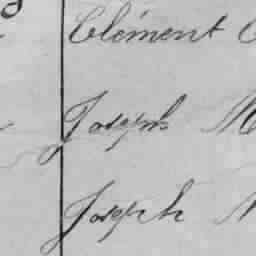 Clément
Joseph M
Joseph